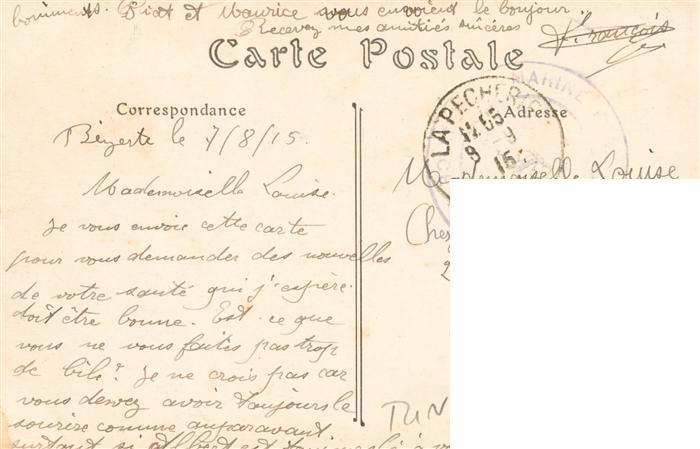 Piot et Maurice vous envoient le bonjour.
Recevez mes amitiés sincères
François
Carte Postale
Correspondance
Adresse
MARINE
LA PECHERIE
Bizerte le 7/8/15.
Mademoiselle Louise.
Je vous envoie cette carte
pour vous demander des nouvelles
de votre santé qui j'espère
doit être bonne. Est-ce que
vous ne vous faites pas trop
de bile? Je ne crois pas car
vous devez avoir toujours le
sourire comme auparavant
surtout si Albert est
Mademoiselle Louise
Chez
TUN